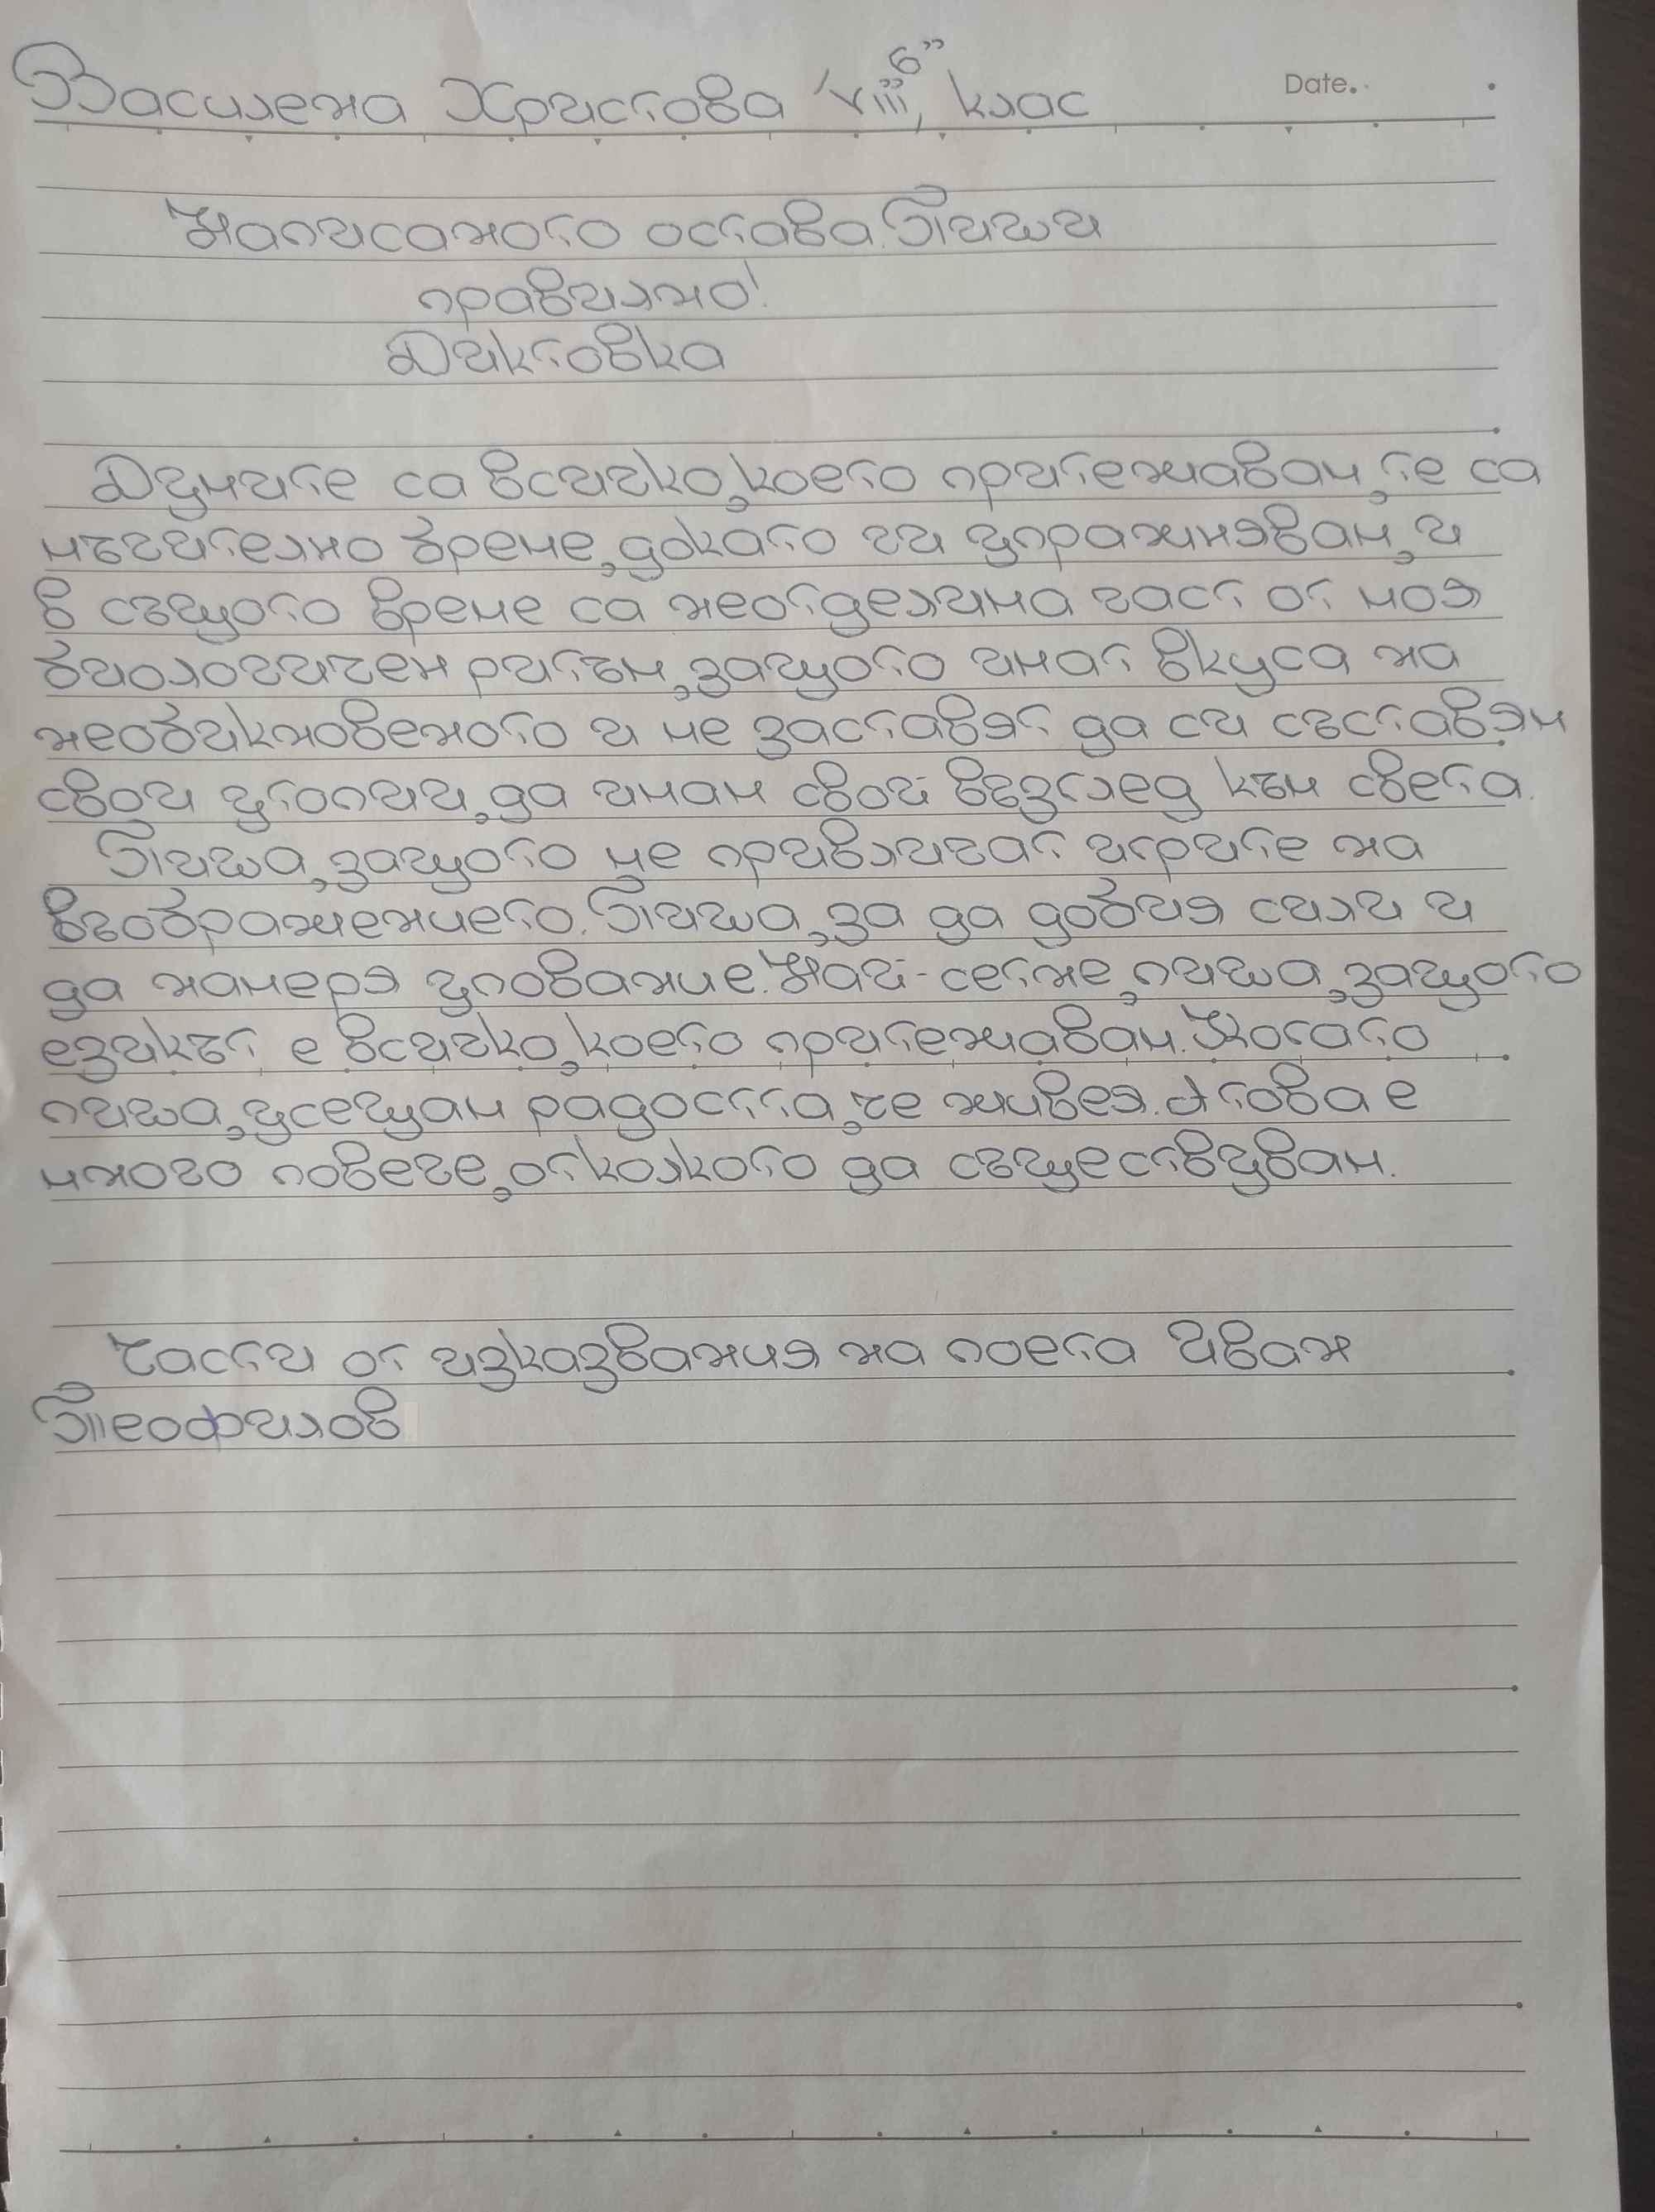 Василена Христова VIII „б" клас
Date.
Написаното остава. Пиши
правилно!
Диктовка
Думите са всичко, което притежавам, те са
мъчително бреме, докато ги упражнявам, и
в същото време са неотделима част от моя
биологичен ритъм, защото имат вкуса на
необикновеното и ме заставят да си съставям
свои утопии, да имам свой възглед към света.
Пиша, защото ме привличат игрите на
въображението. Пиша, за да добия сили и
да намеря упование. Най-сетне, пиша, защото
езикът е всичко, което притежавам. Когато
пиша, усещам радостта, че живея. А това е
много повече, отколкото да съществувам.
Части от изказвания на поета Иван
Теофилов